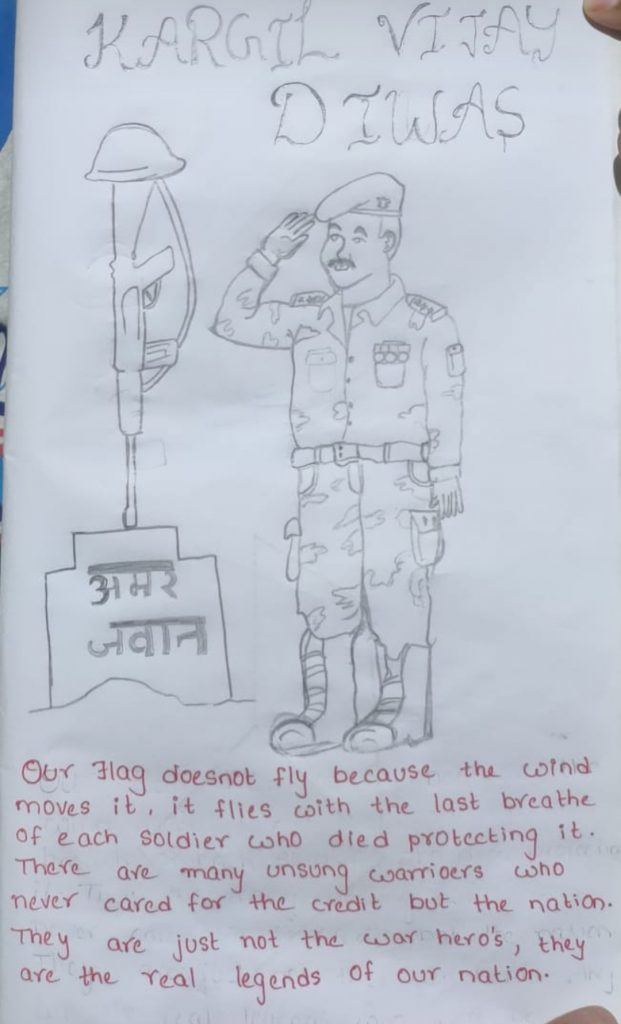 KARGIL VIJAY
DIWAS
अमर
जवान
Our Flag doesnot fly because the wind
moves it, it flies with the last breathe
of each soldier who died protecting it.
There are many unsung warrioers who
never cared for the credit but the nation.
They are just not the war hero's, they
are the real legends of our nation.